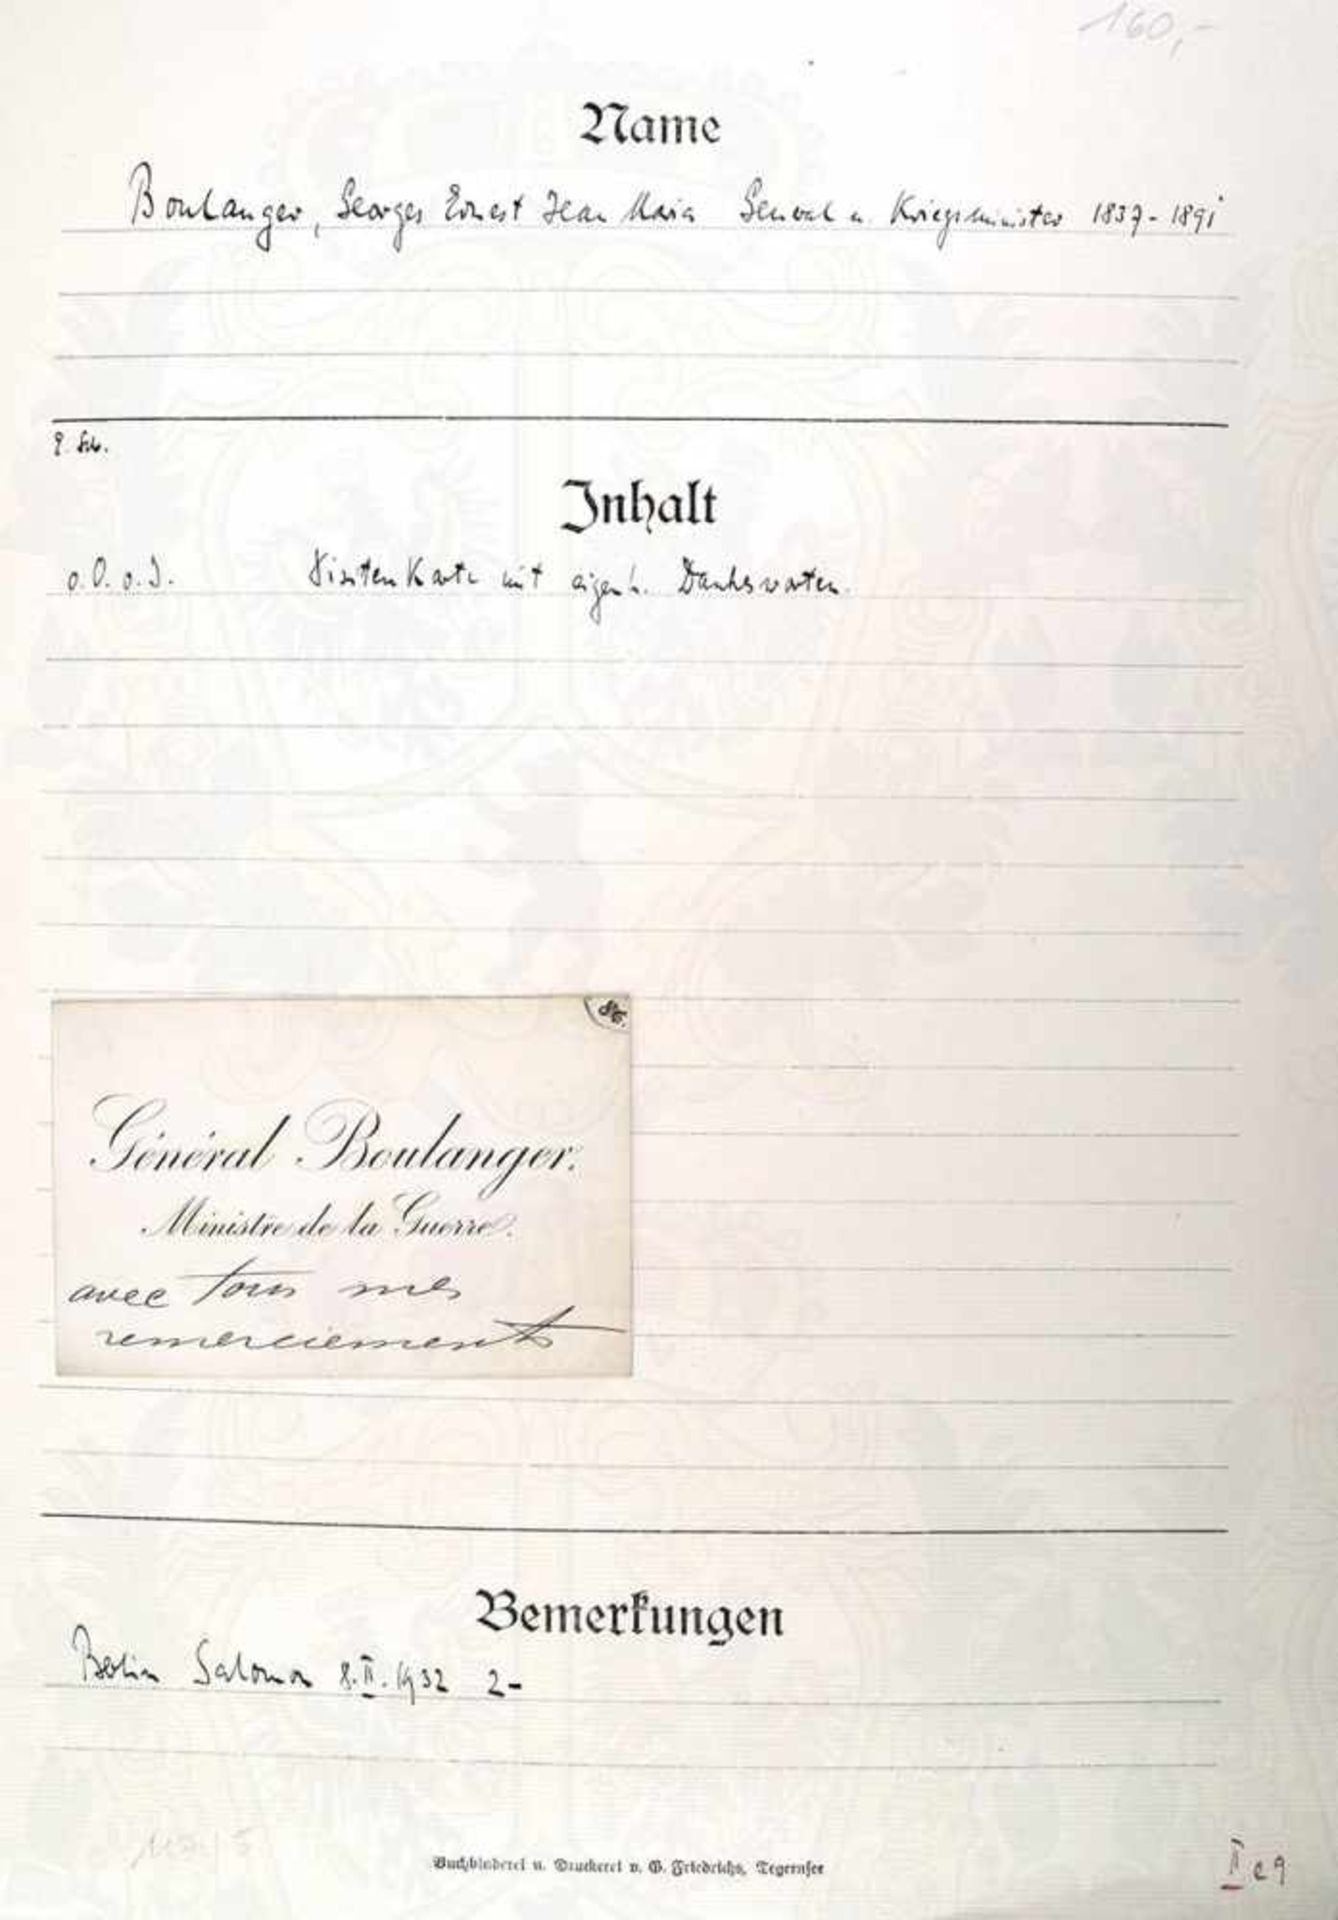 160,-
Name
Boulanger, Georges Ernest Jean Maria General u. Kriegsminister 1837-1891
Inhalt
o.O.o.J. Visitenkarte mit eigenh. Dankesworten.
Général Boulanger.
Ministre de la Guerre.
avec tous mes
remerciements
Bemerkungen
Berlin Salomon 8.II.1932 2-
Buchbinderei u. Druckerei v. G. Friedrichs, Tegernsee
II c 9